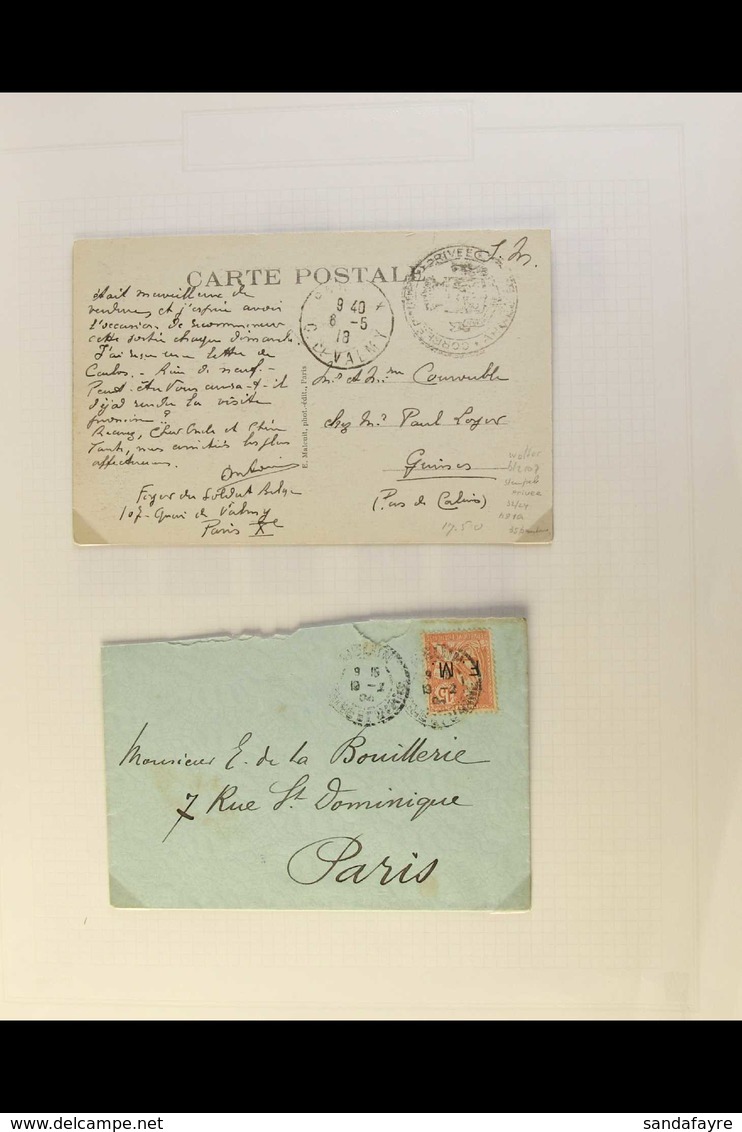 F. M.
CARTE POSTALE
était merveilleuse de
et j'espère avoir
l'occasion de recommencer
cette sortie chaque dimanche.
J'ai reçu une lettre de
Carlos. - Rien de neuf. -
Peut-être vous aura-t-il
déjà rendu la visite
?
Cher Oncle et Chère
Tante, nos amitiés les plus
affectueuses.
Foyer du Soldat Belge
107 - Quai de Valmy
Paris Xe
9 40
6 -5
18
VALMY
PRIVEE
E. Malcuit, phot.-édit., Paris
Mr et Mme
chez Mr Paul Loyer
Guines
(Pas de Calais)
17.50
9 15
13 -2
04
F M
15
Monsieur E. de la Bouillerie
7 Rue St Dominique
Paris
delcampe.net
sandafayre